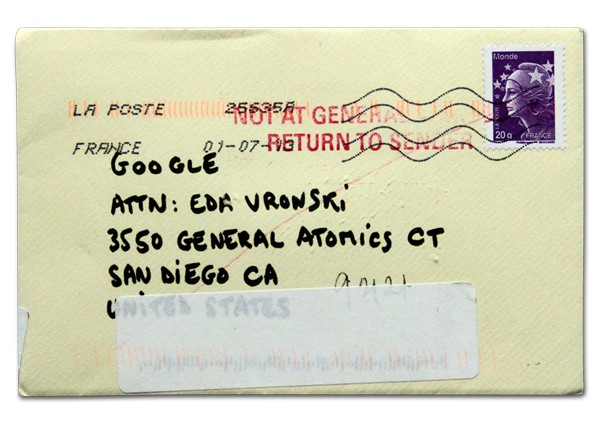 Monde
LA POSTE 25635A
NOT AT GENERAL
FRANCE 01-07-13
RETURN TO SENDER
20g FRANCE
GOOGLE
ATTN: EDA VRONSKI
3550 GENERAL ATOMICS CT
SAN DIEGO CA
UNITED STATES